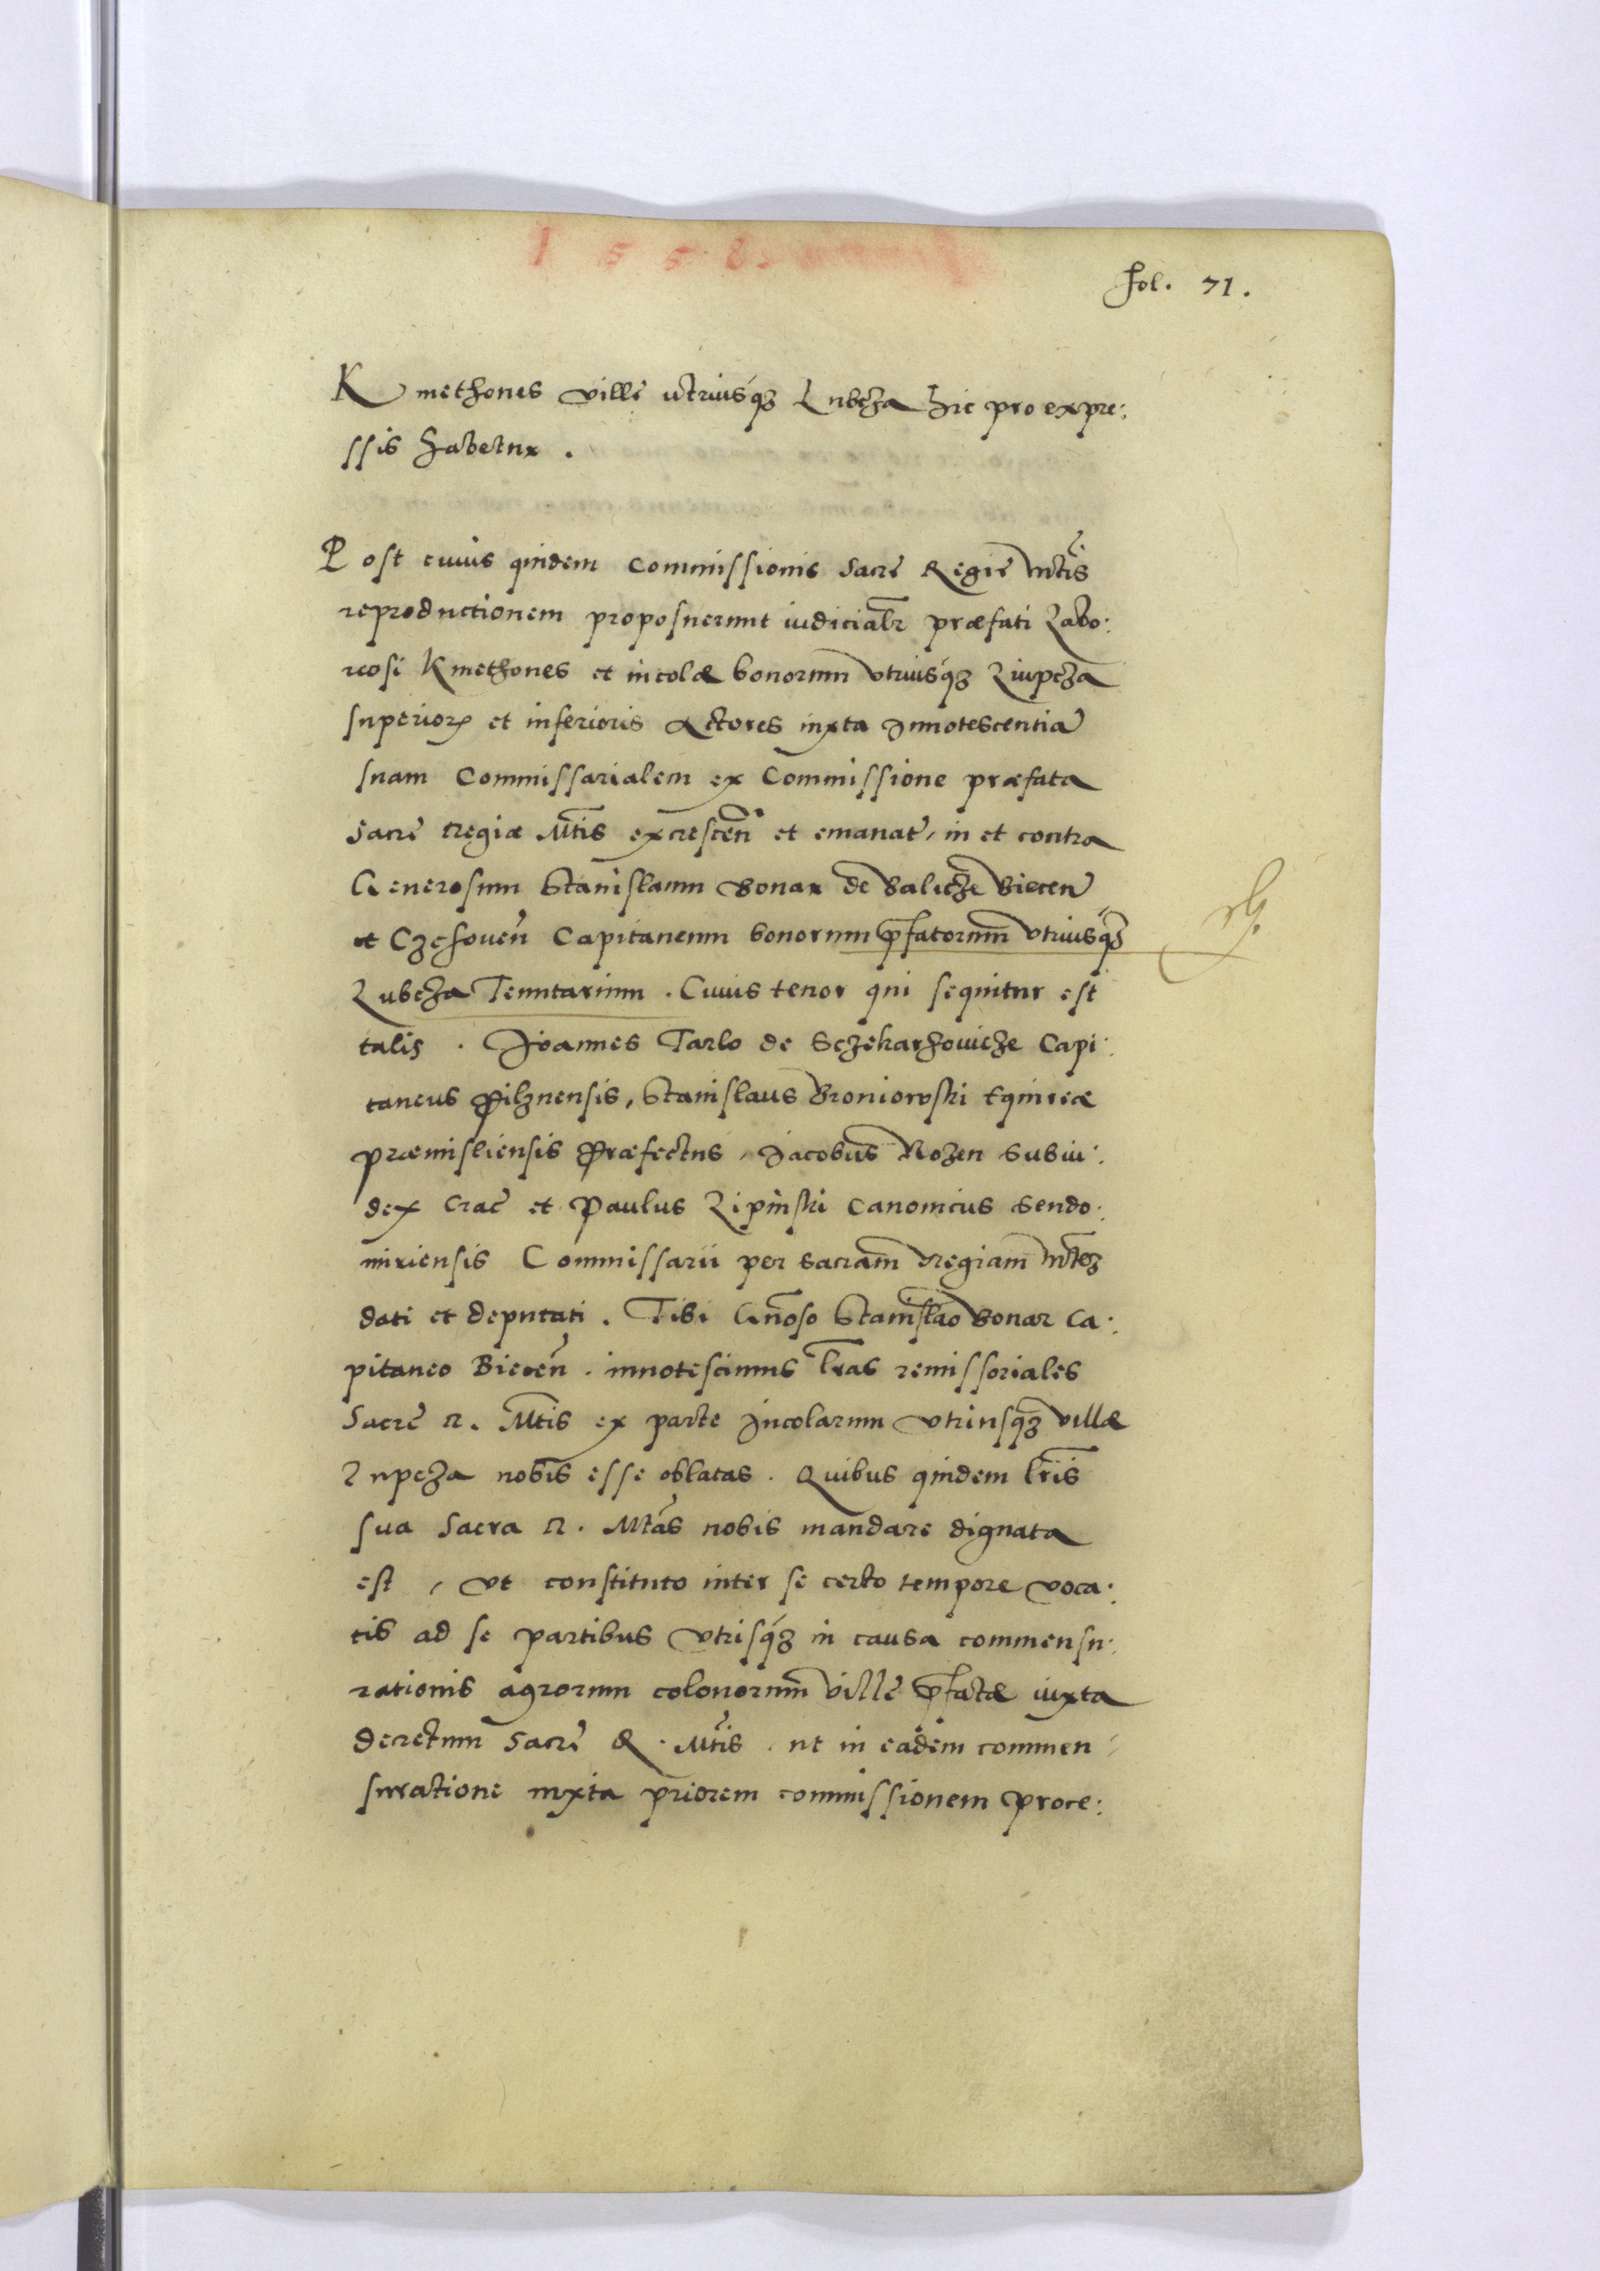 1558.
fol. 71.
Kmethones ville utriusq₃ Lubcza hic pro expre:
ssis habetur.
Post cuius quidem commissionis Sacre Regie Mtis
reproductionem proposuerunt iudicialr præfati Labo:
riosi Kmethones et incolæ bonorum vtriusq₃ Liupcza
superior et inferioris Actores iuxta Innotescentia
suam Commissarialem ex Commissione præfata
Sacre regiæ Mtis excrescen et emanat, in et contra
Generosum Stanislaum Bonar de Balicze Biecen
et Czchouen Capitaneum bonorum pfatorum vtriusq₃
Lubcza Tenutarium. Cuius tenor qui sequitur est
talis. Ioannes Tarlo de Sczekarzowicze Capi:
taneus Pilznensis, Stanislaus Broniowski Equitiæ
præmisliensis Præfectus, Iacobus Rozen Subiu:
dex Crac et Paulus Lipinski Canonicus Sendo:
miriensis Commissarii per Sacram regiam Mtez
dati et deputati. Tibi Gnoso Stanislao Bonar Ca:
pitaneo Biecen. innotescimus lras remissoriales
Sacre R. Mtis ex parte Incolarum vtriusq₃ villæ
Lupcza nobis esse oblatas. Quibus quidem lris
sua Sacra R. Mtas nobis mandare dignata
est, vt constituto inter se certo tempore voca:
tis ad se partibus vtrisq₃ in causa commensu:
rationis agrorum colonorum ville pfatæ iuxta
decretum Sacre R. Mtis. ut in eadem commen:
suratione iuxta priorem commissionem proce: